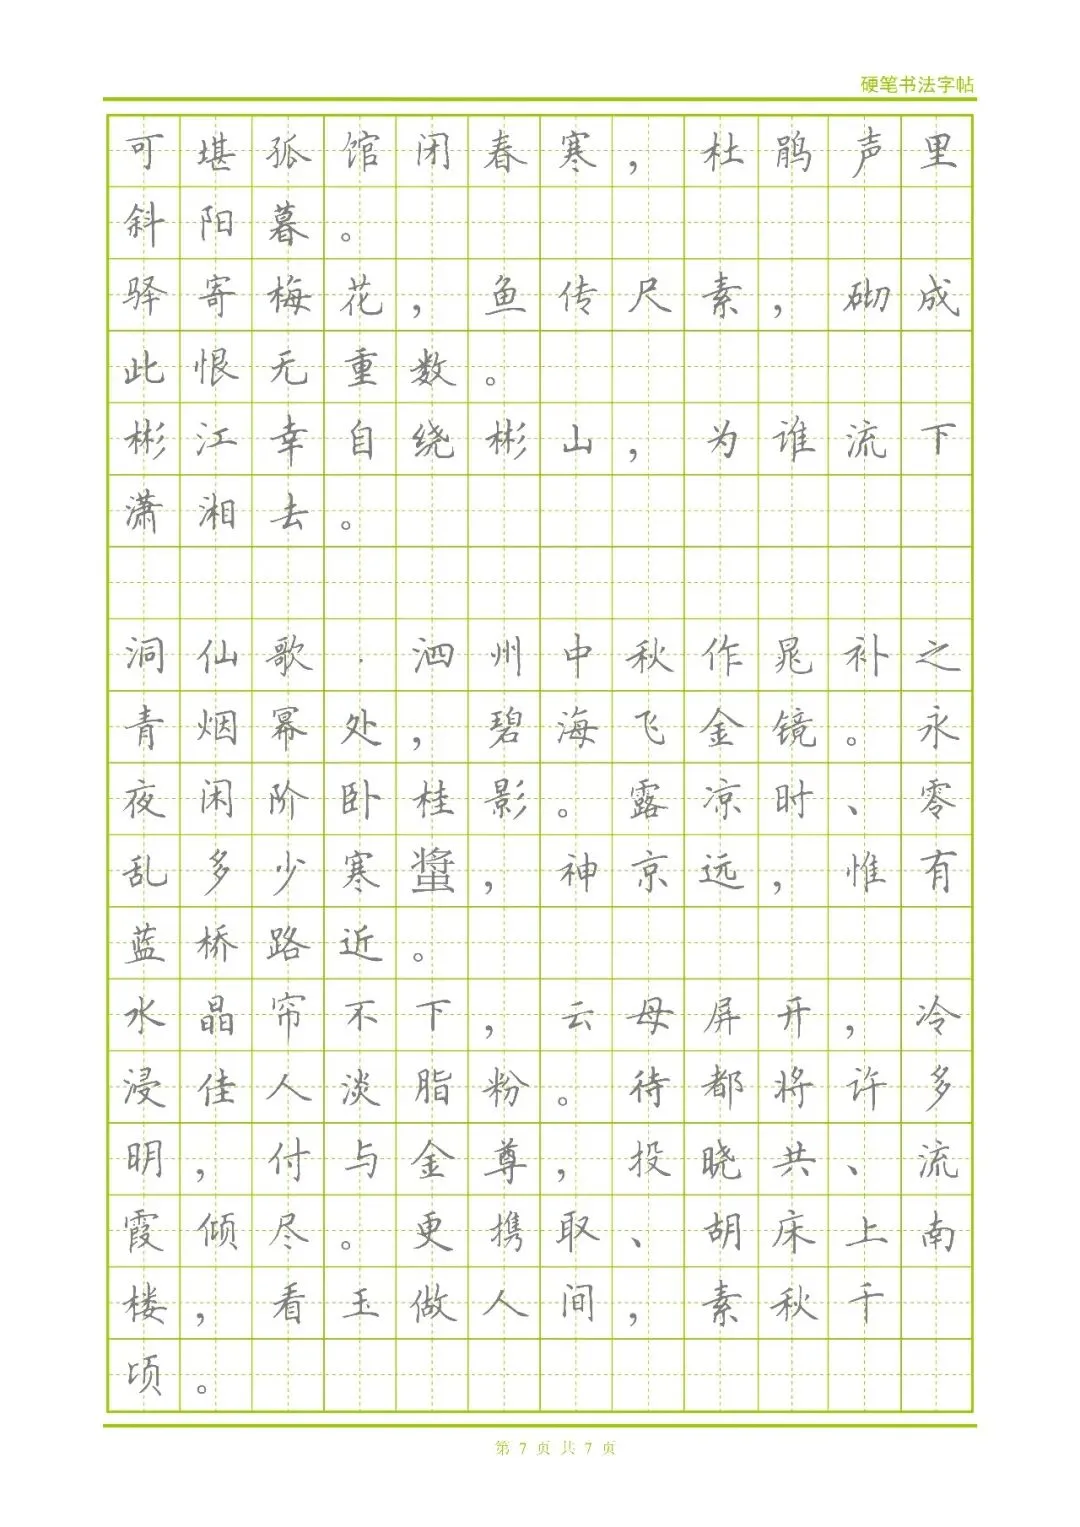 硬笔书法字帖
可堪孤馆闭春寒，杜鹃声里
斜阳暮。
驿寄梅花，鱼传尺素，砌成
此恨无重数。
彬江幸自绕彬山，为谁流下
潇湘去。
洞仙歌·泗州中秋作晁补之
青烟幂处，碧海飞金镜。永
夜闲阶卧桂影。露凉时、零
乱多少寒螀，神京远，惟有
蓝桥路近。
水晶帘不下，云母屏开，冷
浸佳人淡脂粉。待都将许多
明，付与金尊，投晓共、流
霞倾尽。更携取、胡床上南
楼，看玉做人间，素秋千
顷。
第 7 页 共 7 页